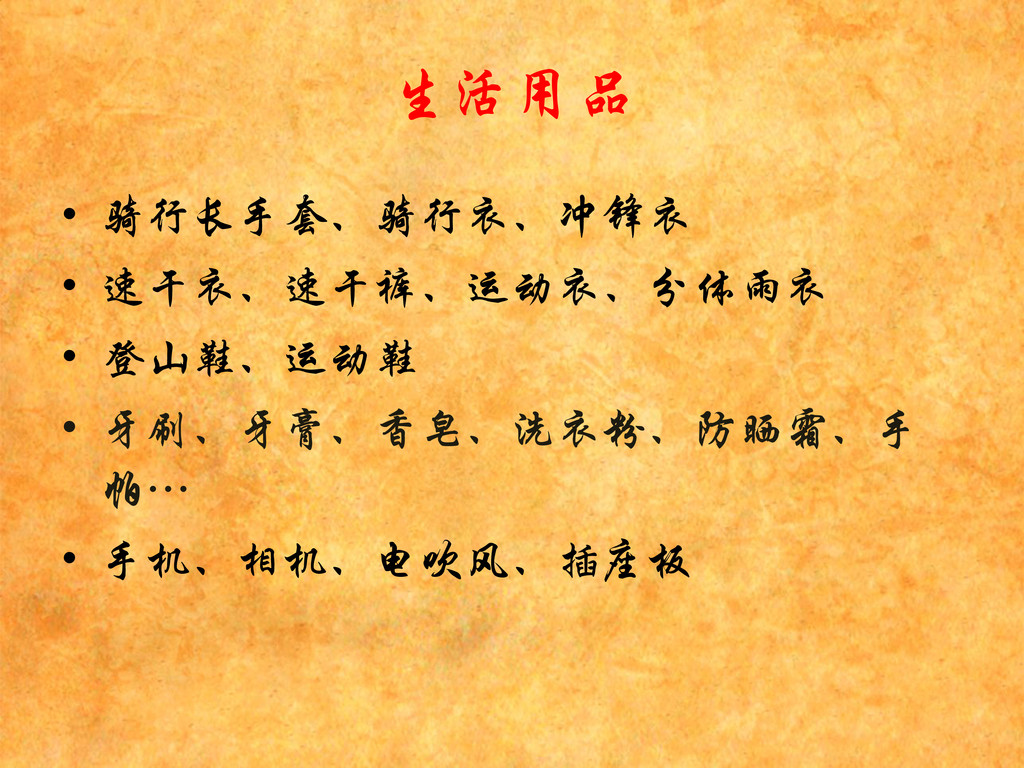 生活用品
• 骑行长手套、骑行衣、冲锋衣
• 速干衣、速干裤、运动衣、分体雨衣
• 登山鞋、运动鞋
• 牙刷、牙膏、香皂、洗衣粉、防晒霜、手
帕…
• 手机、相机、电吹风、插座板